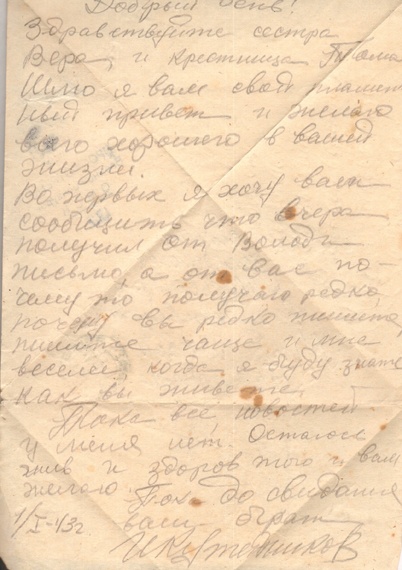 Добрый день!
Здравствуйте сестра
Вера, и крестница Тома
Шлю я вам свой пламен
ный привет и желаю
всего хорошего в вашей
жизни.
Во первых я хочу вам
сообщить что вчера
получил от Володи
письмо, а от вас по-
чему то получаю редко,
почему вы редко пишите,
пишите чаще и мне
веселей когда я буду знать
как вы живете.
Пока все новостей
у меня нет. Остаюсь
жив и здоров того и вам
желаю. Пок до свидания
1/I-43г ваш брат